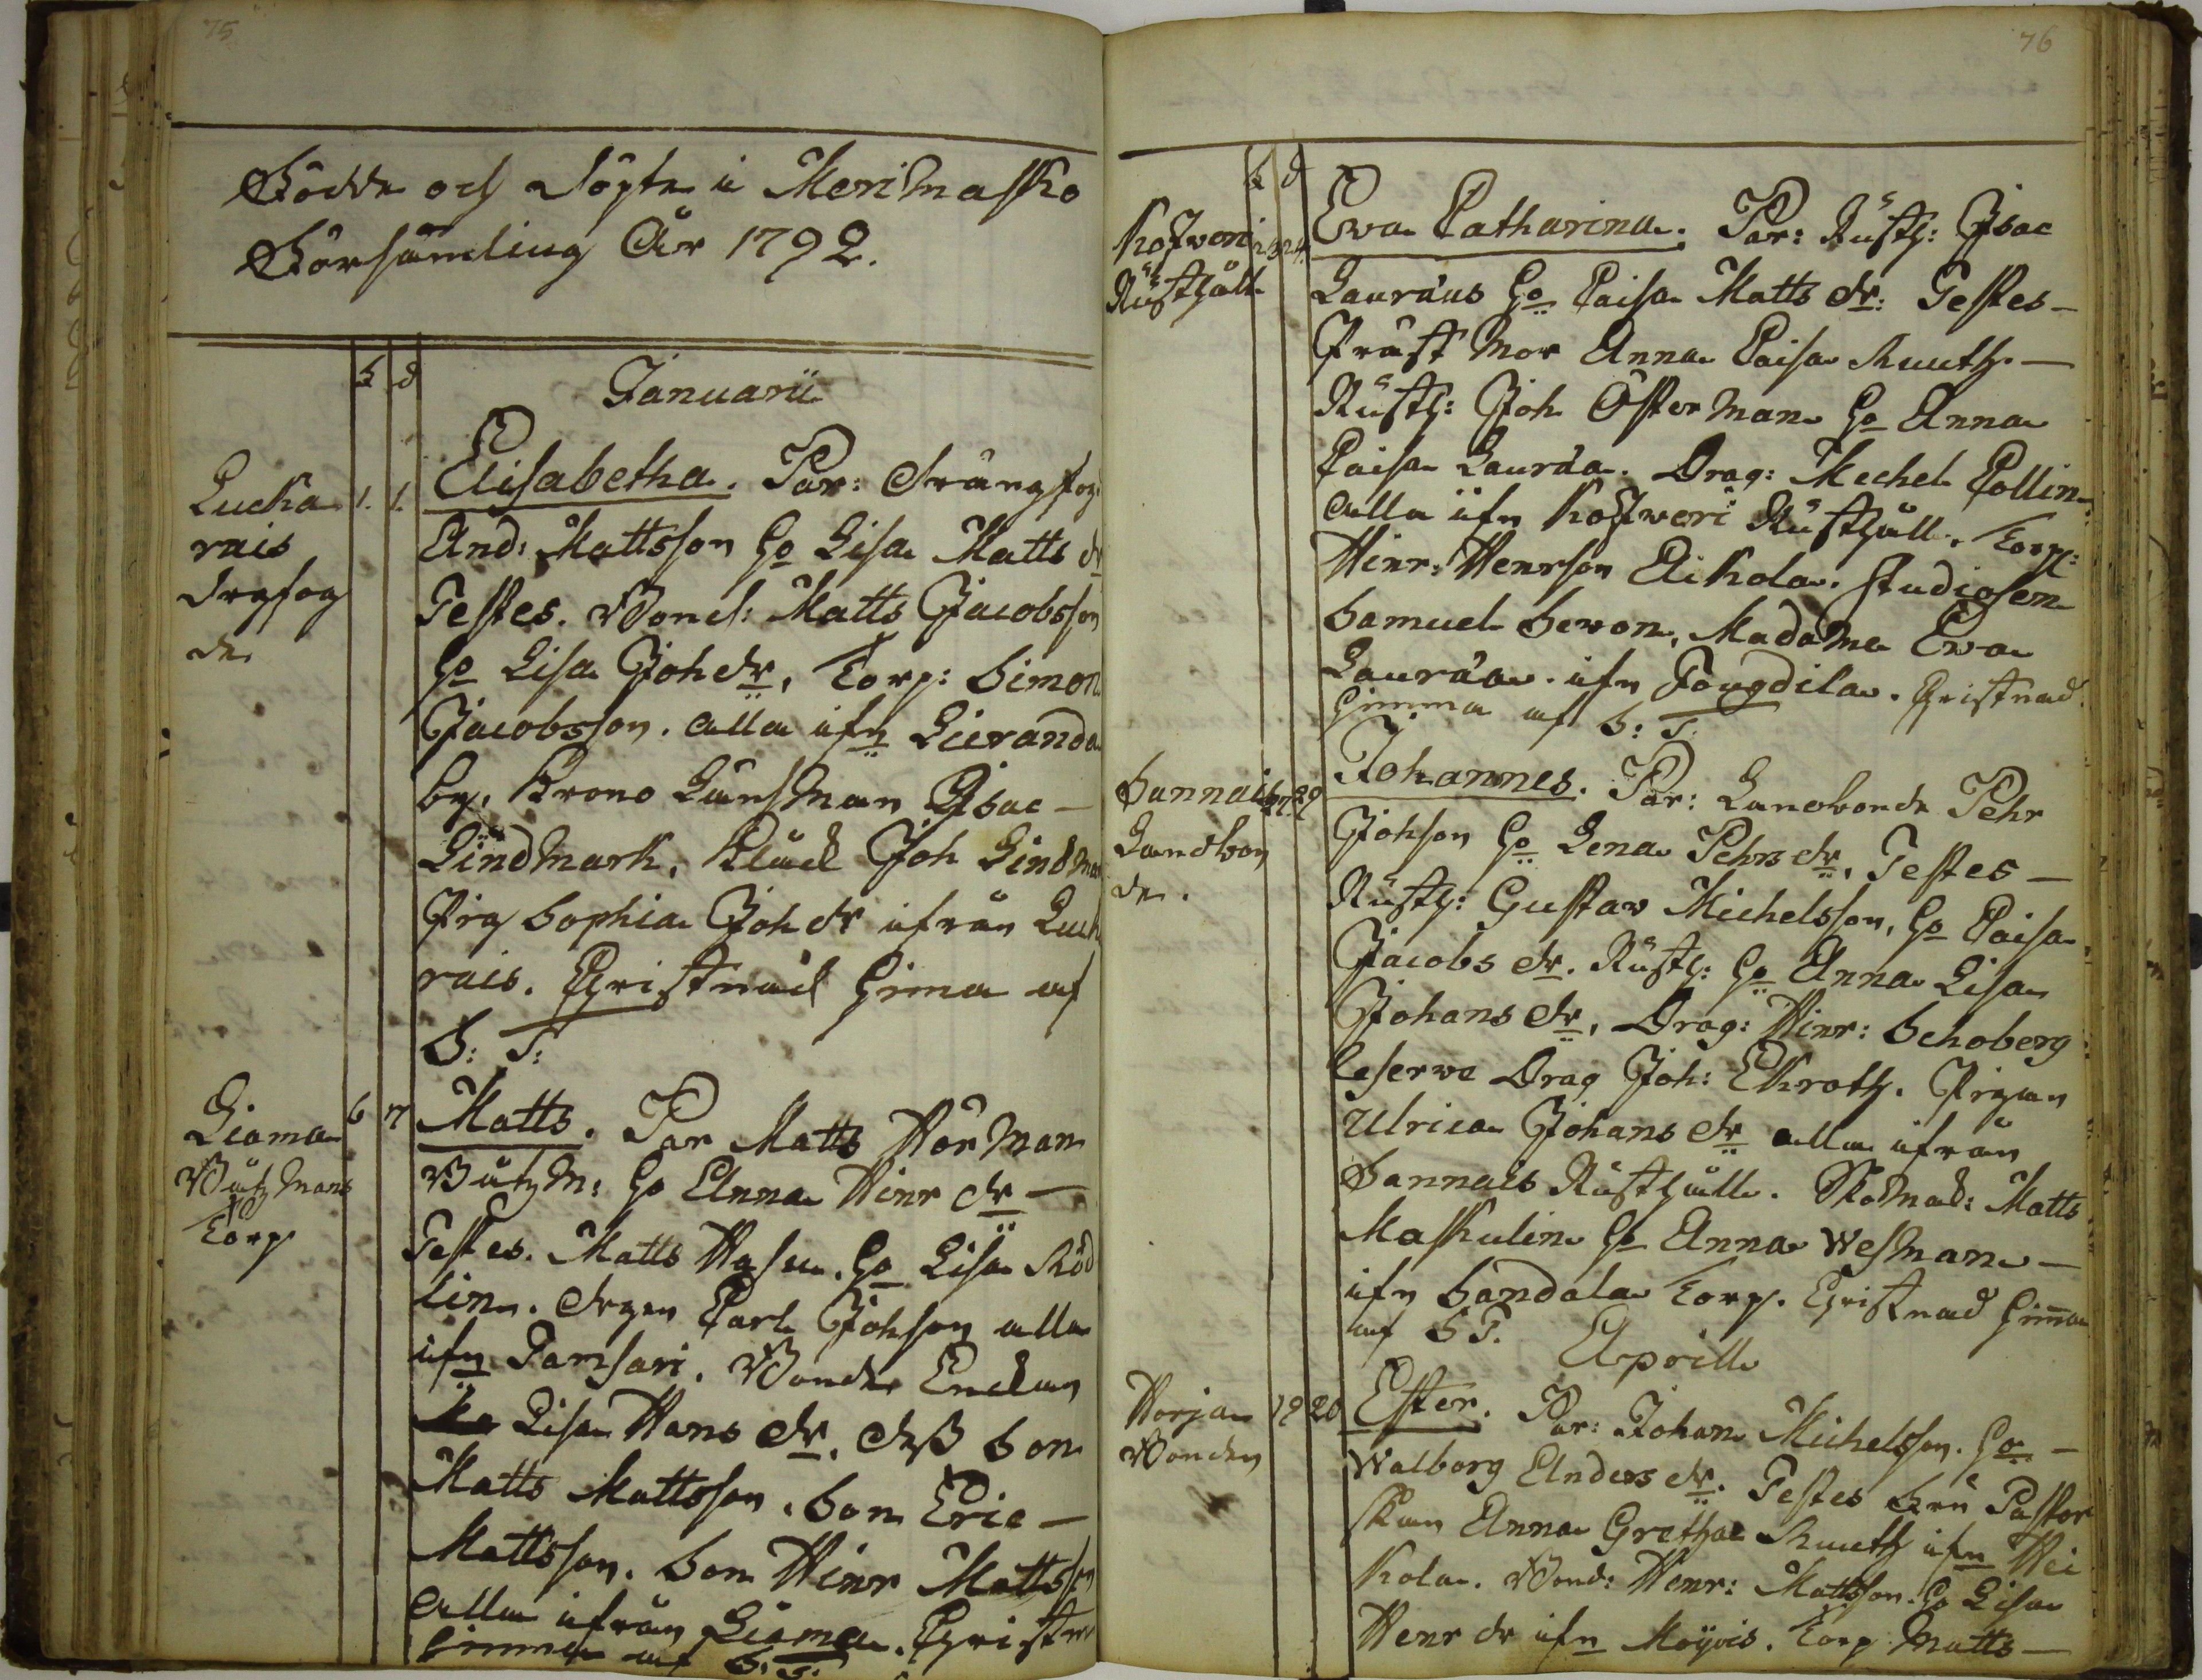 75
Födde och döpte i Merimasko
Församling År 1792.
f d
Januarii
Lucka
rais
drgfog
de
1. 1.
Elisabetha. Par: drängfog:
And: Mattsson ho Lisa Matts dr
Testes. Bond: Matts Jacobsson
ho Lisa Joh dr, Torp: Simon
Jacobsson. alla ifn Lieranda
by. Krono Länsman Isac -
Lindmark, Joh Lindma
Pig Sophia Joh dr ifrån Luck
rais. Christnad hema af
S: T:
Liama
Båtzmans
Torp
6 7
Matts. Par Matts Hörman
Båtzm: ho Anna Hinr dr -
Testes. Matts Hasu. ho Lisa Röd
lin. drgen Carl Johson alla
ifn Tamsari. Bonde Enckan
Lisa Hans dr. deß Son
Matts Mattsson. Son Eric -
Mattsson. Son Hinr Mattsson
alla ifrån Liama. Christn
himma af S: T:
76
f d
Kofveri
Rusthåll
23 24.
Eva Catharina. Par: Rusth: Isac
Lauræus ho Caisa Matts dr: Testes -
Prost mor Anna Caisa Ruuth -
Rusth: Joh Österman ho Anna
Caisa Lauræa. Drag: Mechel Collin.
alla ifn Kofveri Rusthåll. Torp:
Hinr: Henrson Eikola. Studiosen
Samuel Sevon, Madame Eva
Lauræa. ifn Fougdila. Christnad
himma af S: T.
Sannais
Landbon
de.
27 29
Johannes. Par: Landbonde Pehr
Johson ho Lena Pehrs dr, Testes -
Rusth: Gustav Michelsson, ho Caisa
Jacobs dr. Rusth: ho Anna Lisa
Johans dr, Drag: Hinr: Schoberg
Reserve Drag Joh: Ekroth. Pigan
Ulrica Johans dr alla ifrån
Sannais Rusthåll. Skomak: Matts
Maskulin ho Anna Wesman -
ifn Sandala Torp. Christnad himma
af S T.
Aprill
Horja
Bonden
19 20
Ester. Par: Johan Michelsson. ho -
Walborg Anders dr. Testes Fru Pastor
skan Anna Gretha Ruuth ifn Hei
kola. Bond: Henr: Mattsson. ho Lisa
Henr dr ifn Moÿvis. Torp Matts -